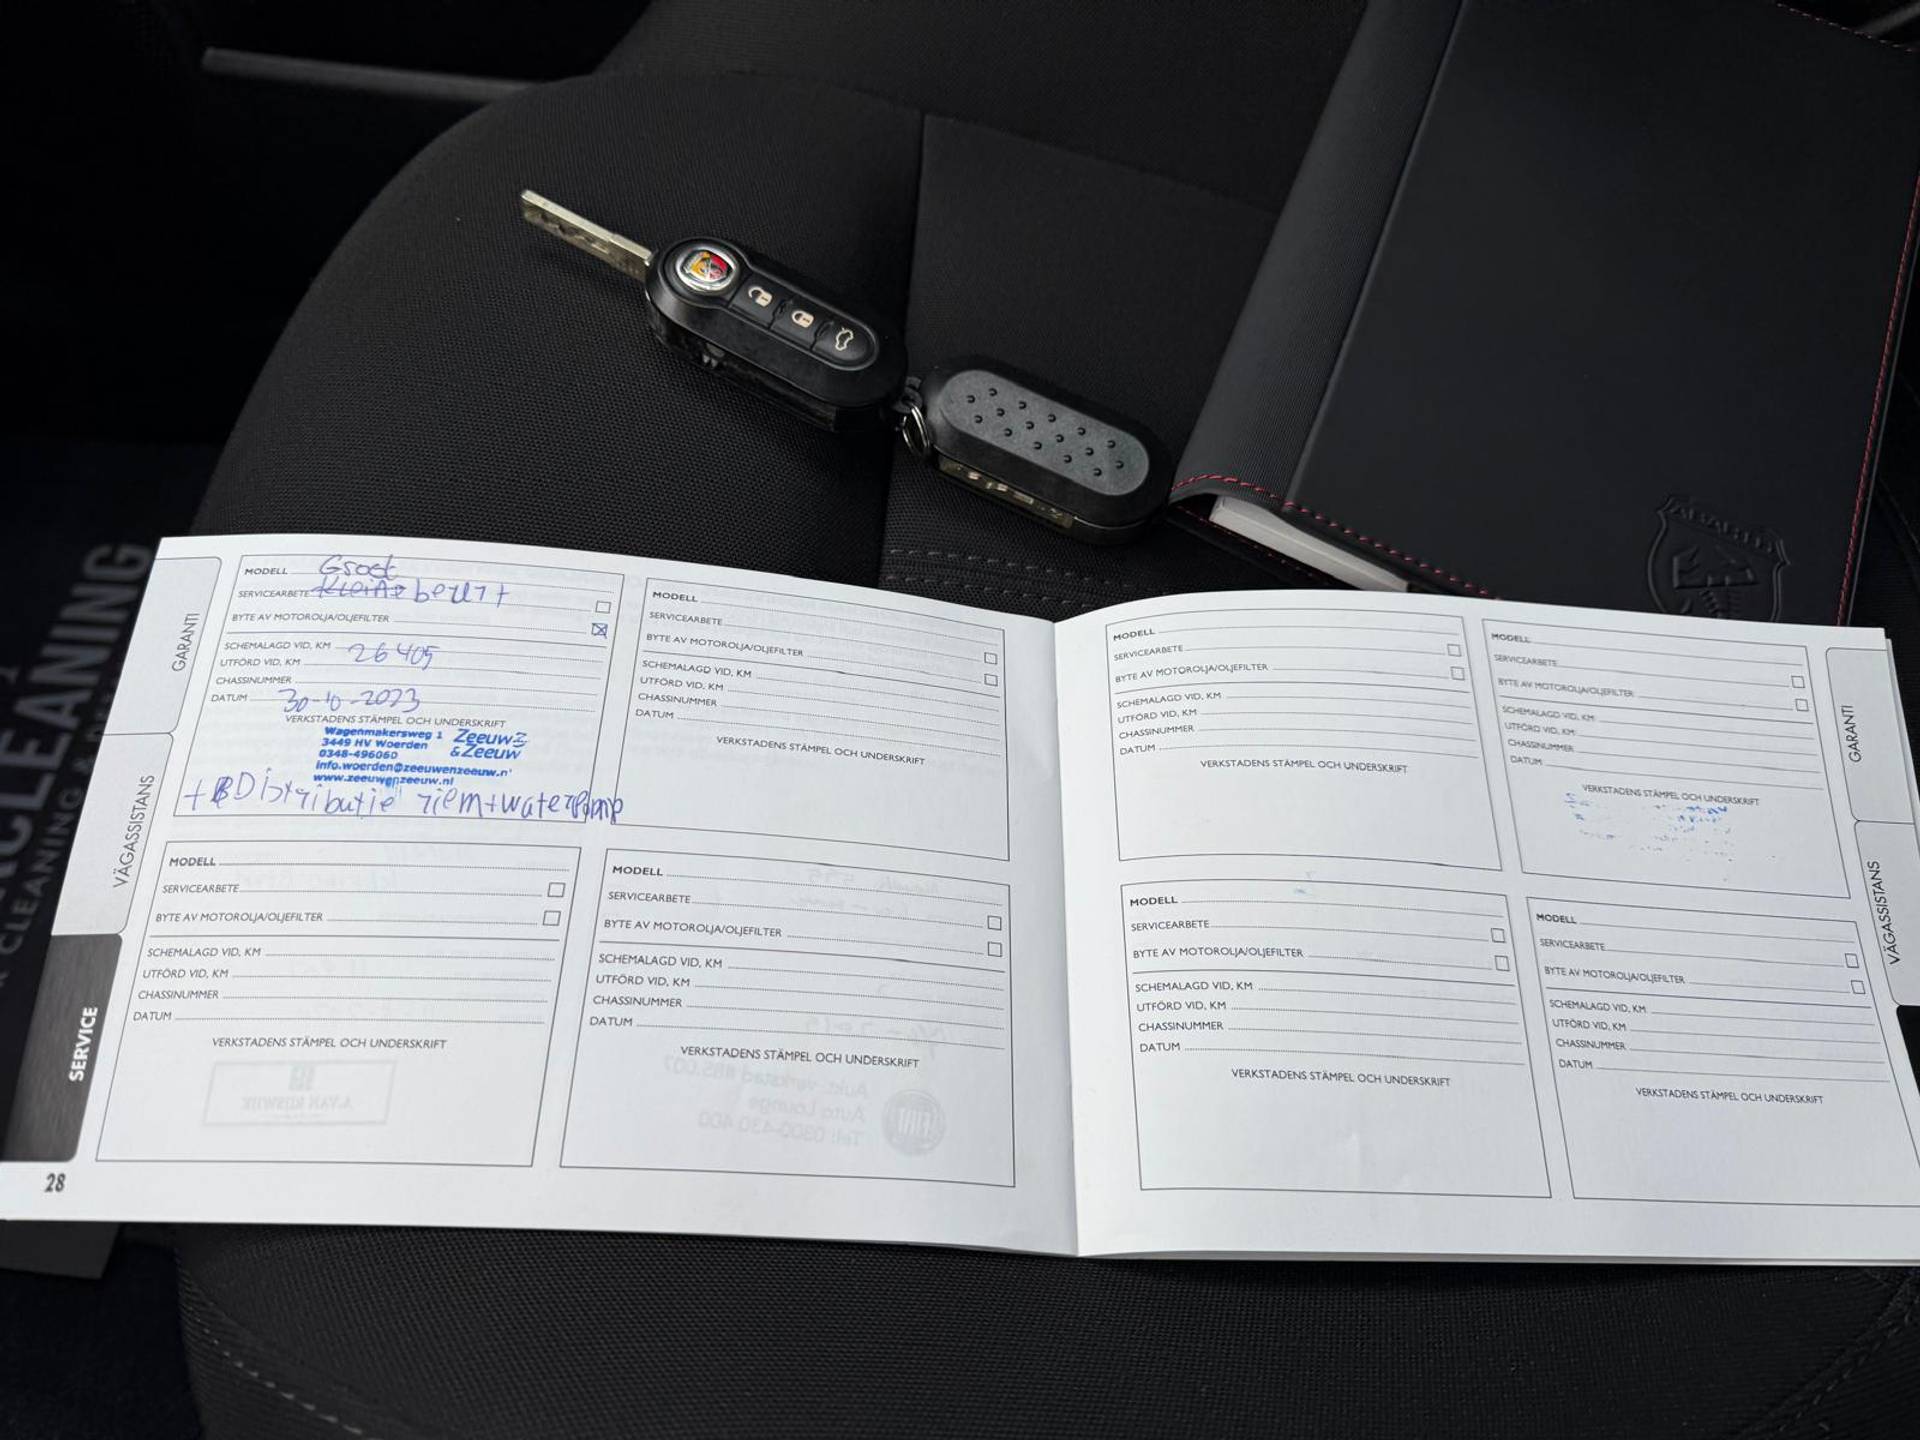 CLEANING
CLEANING &
ABARTH
GARANTI
VÄGASSISTANS
SERVICE
28
MODELL
Groot
SERVICEARBETE Kleine beurt
BYTE AV MOTOROLJA/OLJEFILTER
SCHEMALAGD VID, KM
UTFÖRD VID, KM 26405
CHASSINUMMER
DATUM 30-10-2023
VERKSTADENS STÄMPEL OCH UNDERSKRIFT
Wagenmakersweg 1
3449 HV Woerden
0348-496060
info.woerden@zeeuwenzeeuw.n
www.zeeuwenzeeuw.nl
Zeeuw
& Zeeuw
+ Distributie riem + waterpomp
MODELL
SERVICEARBETE
BYTE AV MOTOROLJA/OLJEFILTER
SCHEMALAGD VID, KM
UTFÖRD VID, KM
CHASSINUMMER
DATUM
VERKSTADENS STÄMPEL OCH UNDERSKRIFT
MODELL
SERVICEARBETE
BYTE AV MOTOROLJA/OLJEFILTER
SCHEMALAGD VID, KM
UTFÖRD VID, KM
CHASSINUMMER
DATUM
VERKSTADENS STÄMPEL OCH UNDERSKRIFT
MODELL
SERVICEARBETE
BYTE AV MOTOROLJA/OLJEFILTER
SCHEMALAGD VID, KM
UTFÖRD VID, KM
CHASSINUMMER
DATUM
VERKSTADENS STÄMPEL OCH UNDERSKRIFT
MODELL
SERVICEARBETE
BYTE AV MOTOROLJA/OLJEFILTER
SCHEMALAGD VID, KM
UTFÖRD VID, KM
CHASSINUMMER
DATUM
VERKSTADENS STÄMPEL OCH UNDERSKRIFT
MODELL
SERVICEARBETE
BYTE AV MOTOROLJA/OLJEFILTER
SCHEMALAGD VID, KM
UTFÖRD VID, KM
CHASSINUMMER
DATUM
VERKSTADENS STÄMPEL OCH UNDERSKRIFT
MODELL
SERVICEARBETE
BYTE AV MOTOROLJA/OLJEFILTER
SCHEMALAGD VID, KM
UTFÖRD VID, KM
CHASSINUMMER
DATUM
VERKSTADENS STÄMPEL OCH UNDERSKRIFT
MODELL
SERVICEARBETE
BYTE AV MOTOROLJA/OLJEFILTER
SCHEMALAGD VID, KM
UTFÖRD VID, KM
CHASSINUMMER
DATUM
VERKSTADENS STÄMPEL OCH UNDERSKRIFT
GARANTI
VÄGASSISTANS